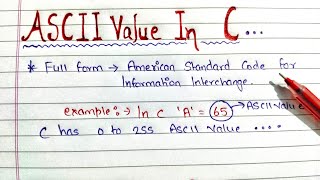 ASCII Value In C...
* Full form → American Standard Code for
Information Interchange.
example:→ In C 'A' = 65 → ASCII Value
C has 0 to 255 ASCII Value ....